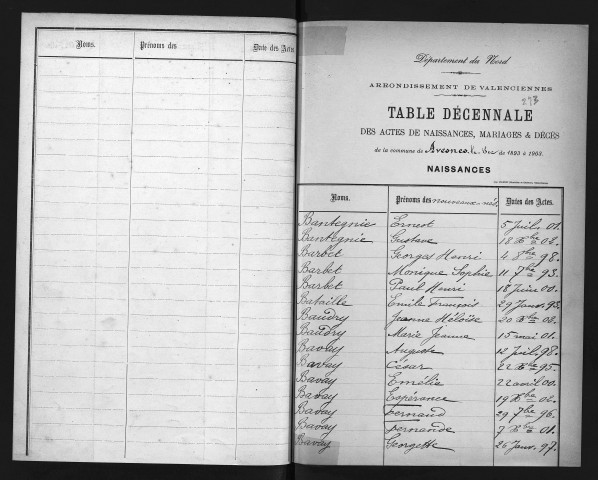 Noms. Prénoms des Date des Actes.
Département du Nord
ARRONDISSEMENT DE VALENCIENNES
273
TABLE DÉCENNALE
DES ACTES DE NAISSANCES, MARIAGES & DÉCÈS
de la commune de Avesnes-le-Sec de 1893 à 1903.
NAISSANCES
Noms. Prénoms des nouveaux-nés Dates des Actes.
Bantegnie Ernest 5 Juil. 01.
Bantegnie Gustave 18 Xbre 02.
Barbet Georges Henri 4 8bre 98.
Barbet Monique Sophie 11 7bre 93.
Barbet Paul Henri 18 Juin 00.
Bataille Emile François 29 Janv. 93
Baudry Jeanne Héloïse 20 Xbre 02.
Baudry Marie Jeanne 15 mai 01.
Bavay Auguste 12 Juil. 98.
Bavay César 22 Xbre 95.
Bavay Emélie 22 avril 00.
Bavay Espérance 19 Xbre 02.
Bavay Fernand 29 7bre 96.
Bavay Fernande 7 Xbre 01.
Bavay Georgette 26 Janv. 97.